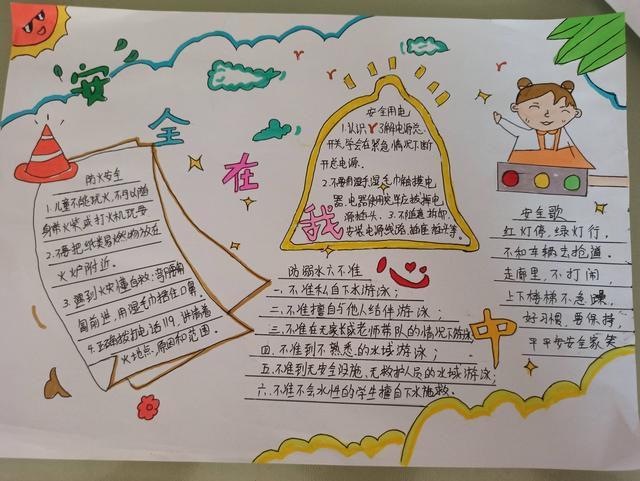 安全在我心中
防火安全
1.儿童不能玩火,不可以随
身带火柴或打火机玩耍
2.不要把纸类易燃物放在
火炉附近。
3.遇到火灾懂自救:弯腰匍
匐前进,用湿毛巾捂住口鼻。
4.正确拨打电话119,讲清着
火地点、原因和范围。
安全用电
1.认识了解电源总
开关,学会在紧急情况下断
开总电源。
2.不要用湿手湿毛巾触摸电
器,电器使用完毕应拔掉电
源插头。3.不随意拆卸、
安装电源线路、插座、插头等。
防溺水六不准
一.不准私自下水游泳;
二.不准擅自与他人结伴游泳;
三.不准在无家长或老师带队的情况下游泳
四.不准到不熟悉的水域游泳;
五.不准到无安全设施、无救护人员的水域游泳;
六.不准不会水性的学生擅自下水施救。
安全歌
红灯停,绿灯行,
不和车辆去抢道。
走廊里,不打闹,
上下楼梯不急躁,
好习惯,要保持,
平平安安全家笑